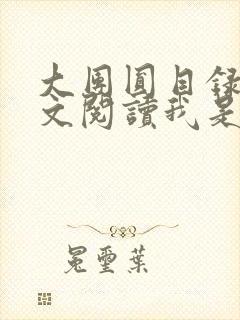 大團圓目錄
文閱讀我是
冕璽葉